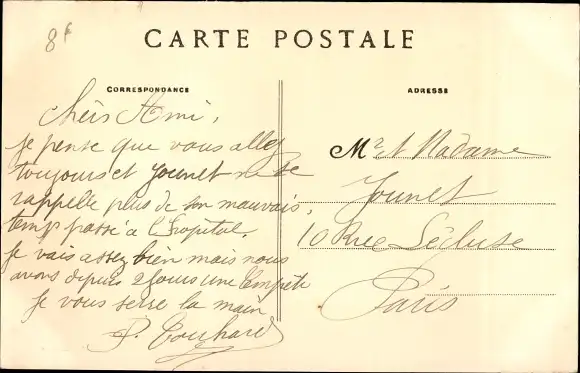 8f
CARTE POSTALE
CORRESPONDANCE
ADRESSE
Chers Ami,
je pense que vous allez
toujours et Jounet ne se
rappelle plus de son mauvais,
temp passé a l'hopital.
Je vais assez bien mais nous
avons depuis 2 jours une tempête
Je vous serre la main
P.
Mr et Madame
Jounet
10 Rue Lécluse
Paris